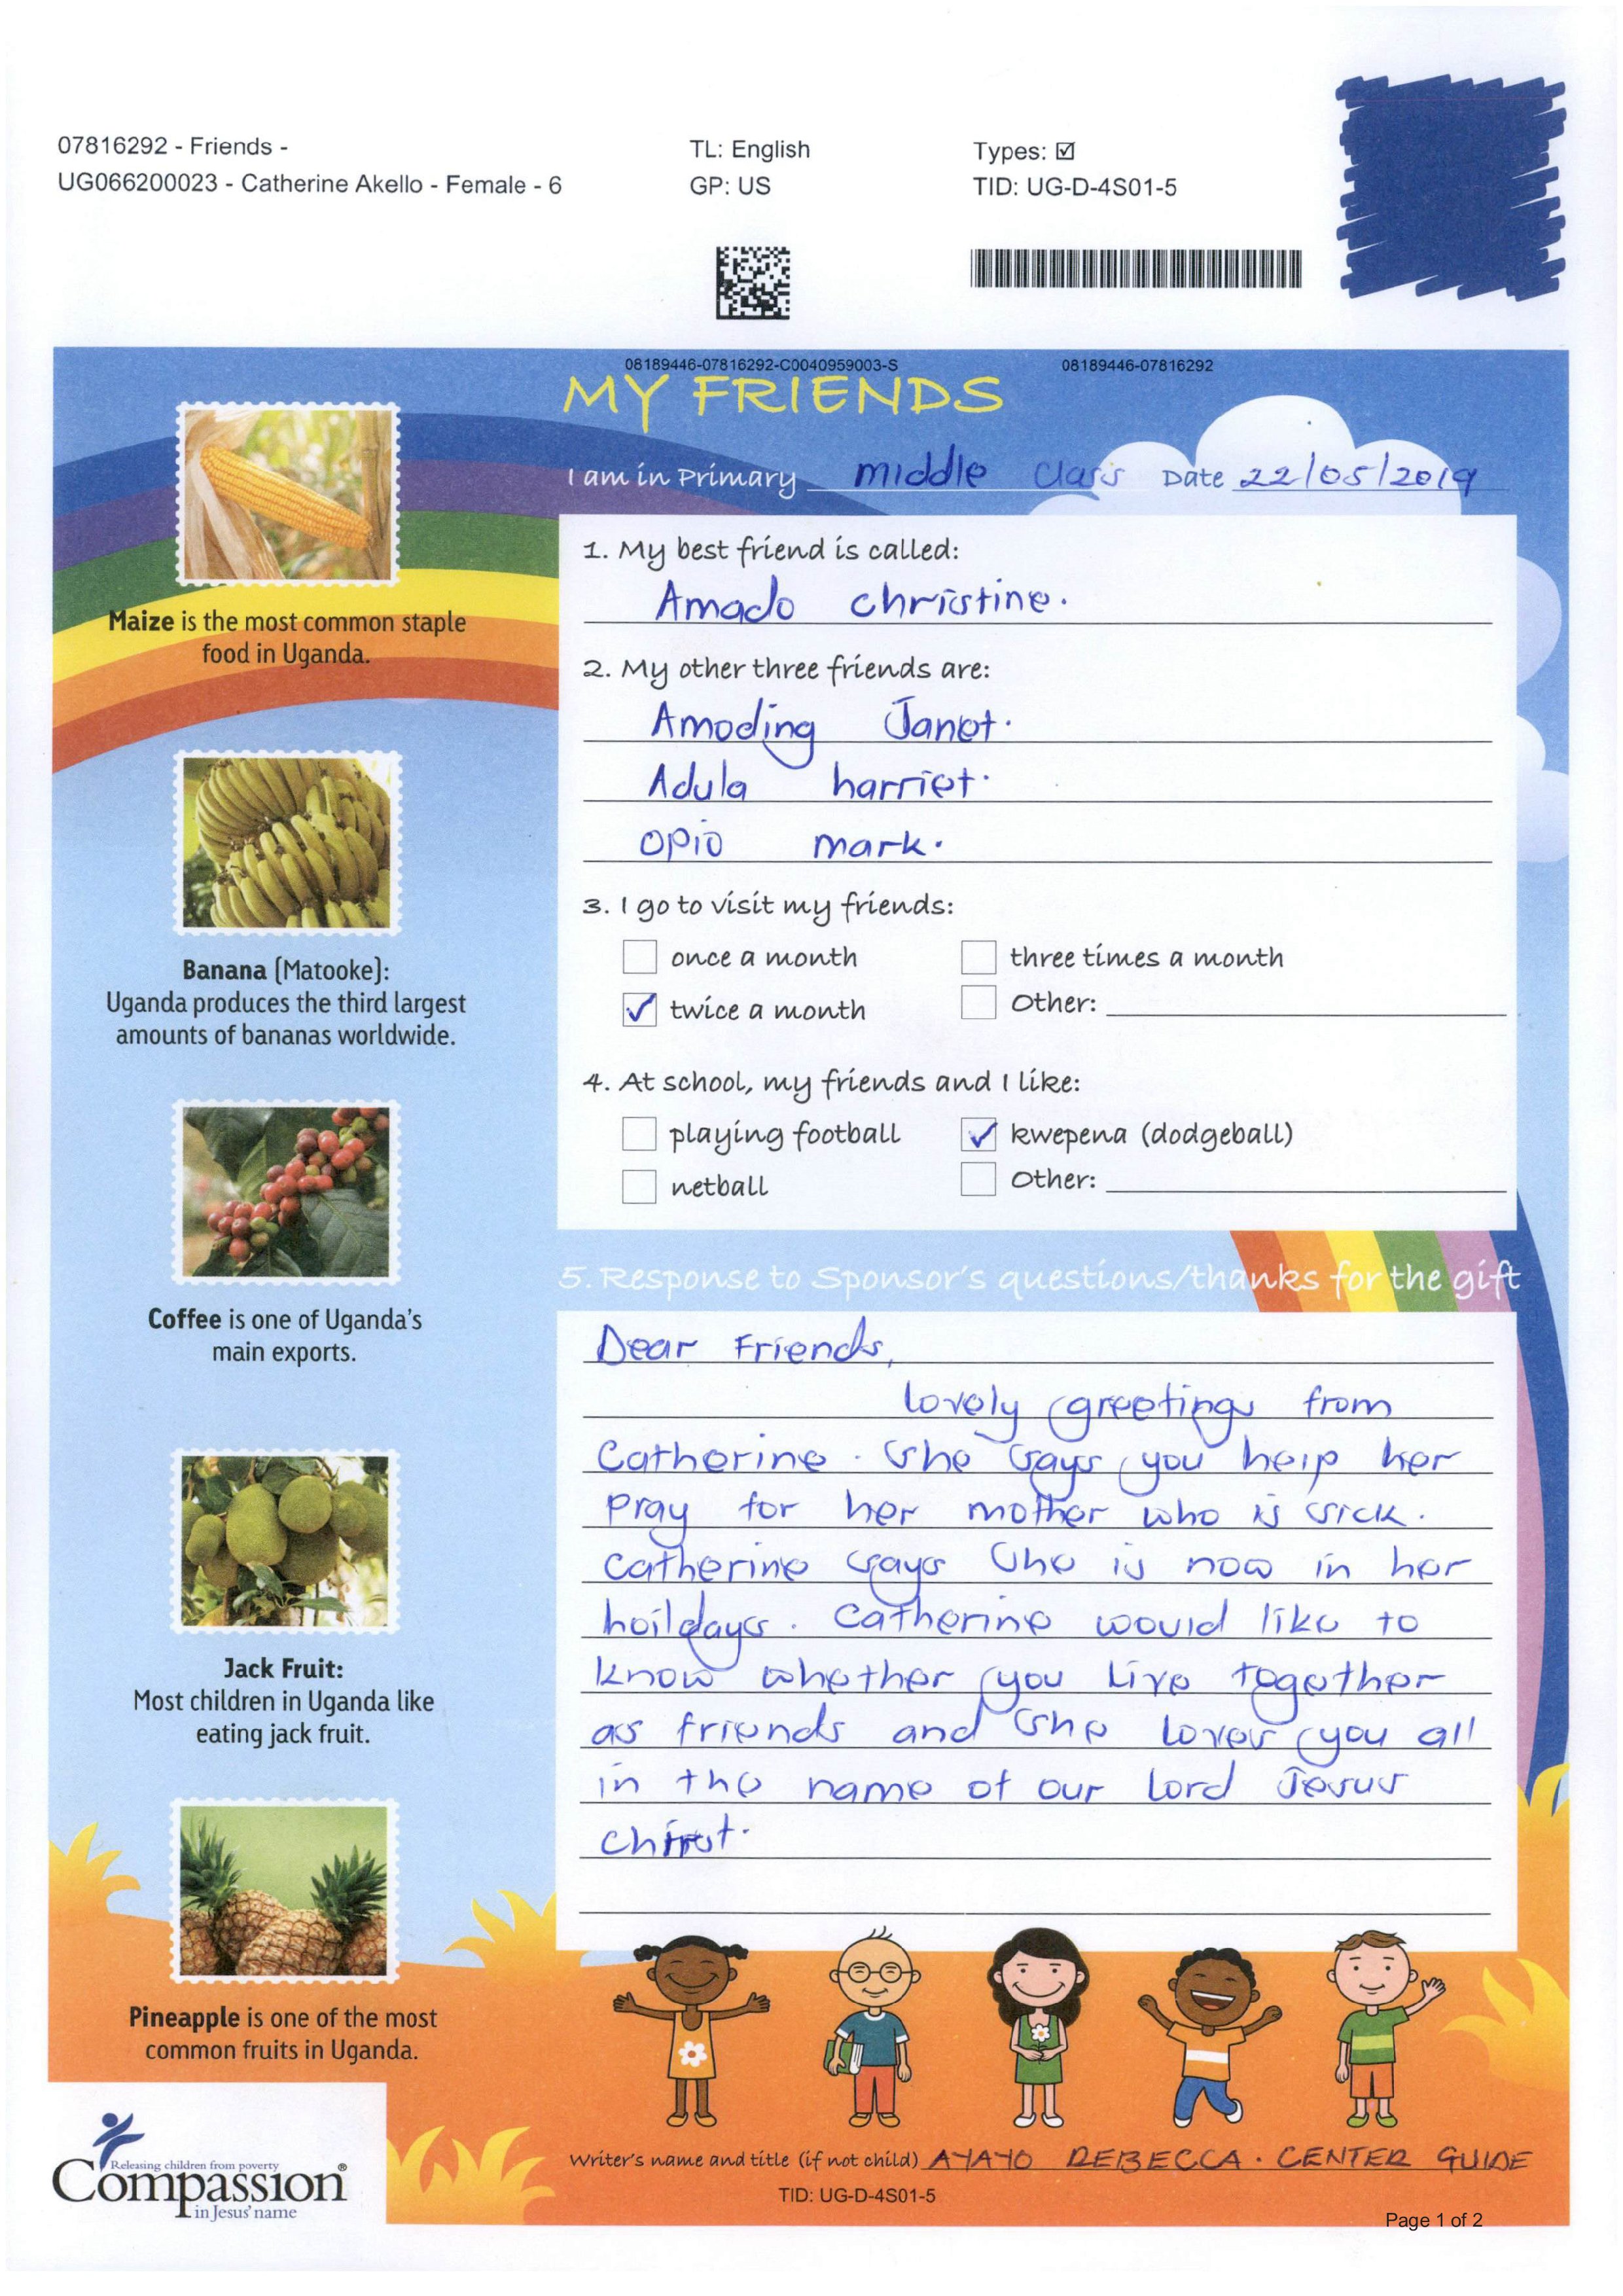 07816292 - Friends -
UG066200023 - Catherine Akello - Female - 6
TL: English
GP: US
Types: ☑
TID: UG-D-4S01-5
08189446-07816292-C0040959003-S
08189446-07816292
MY FRIENDS
I am in Primary middle class Date 22/05/2019
1. My best friend is called:
Amado christine.
2. My other three friends are:
Amoding Janet.
Adula harriet.
opio mark.
3. I go to visit my friends:
once a month
three times a month
twice a month
Other:
4. At school, my friends and I like:
playing football
kwepena (dodgeball)
netball
Other:
5. Response to Sponsor's questions/thanks for the gift
Dear Friends,
lovely greetings from
Catherine. She says you help her
pray for her mother who is sick.
catherine says She is now in her
hoildays. Catherine would like to
know whether you Live together
as friends and She loves you all
in the name of our Lord Jesus
Maize is the most common staple
food in Uganda.
Banana (Matooke):
Uganda produces the third largest
amounts of bananas worldwide.
Coffee is one of Uganda's
main exports.
Jack Fruit:
Most children in Uganda like
eating jack fruit.
Pineapple is one of the most
common fruits in Uganda.
Releasing children from poverty
Compassion®
in Jesus' name
Writer's name and title (if not child) AYAYO REBECCA. CENTER GUIDE
TID: UG-D-4S01-5
Page 1 of 2